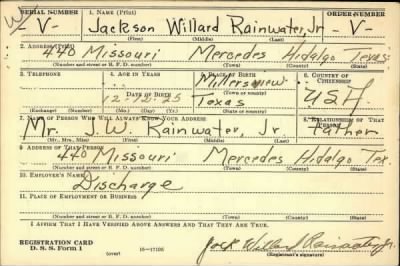 SERIAL NUMBER 1. NAME (Print) ORDER NUMBER
V- Jackson Willard Rainwater, Jr - V-
(First) (Middle) (Last)
2. ADDRESS (Print)
440 Missouri Mercedes Hidalgo Texas
(Number and street or R. F. D. number) (Town) (County) (State)
3. TELEPHONE 4. AGE IN YEARS 5. PLACE OF BIRTH 6. COUNTRY OF CITIZENSHIP
Millersview
DATE OF BIRTH (Town or county)
12-12-25 Texas U.S.A.
(Exchange) (Number) (Mo.) (Day) (Yr.) (State or country)
7. NAME OF PERSON WHO WILL ALWAYS KNOW YOUR ADDRESS 8. RELATIONSHIP OF THAT PERSON
Mr. J. W. Rainwater, Jr. Father
(Mr., Mrs., Miss) (First) (Middle) (Last)
9. ADDRESS OF THAT PERSON
440 Missouri Mercedes Hidalgo Tex.
(Number and street or R. F. D. number) (Town) (County) (State)
10. EMPLOYER'S NAME
Discharge
11. PLACE OF EMPLOYMENT OR BUSINESS
(Number and street or R. F. D. number) (Town) (County) (State)
I AFFIRM THAT I HAVE VERIFIED ABOVE ANSWERS AND THAT THEY ARE TRUE.
REGISTRATION CARD
D. S. S. Form 1 16-17105 Jack Willard Rainwater Jr.
(over) (Registrant's signature)